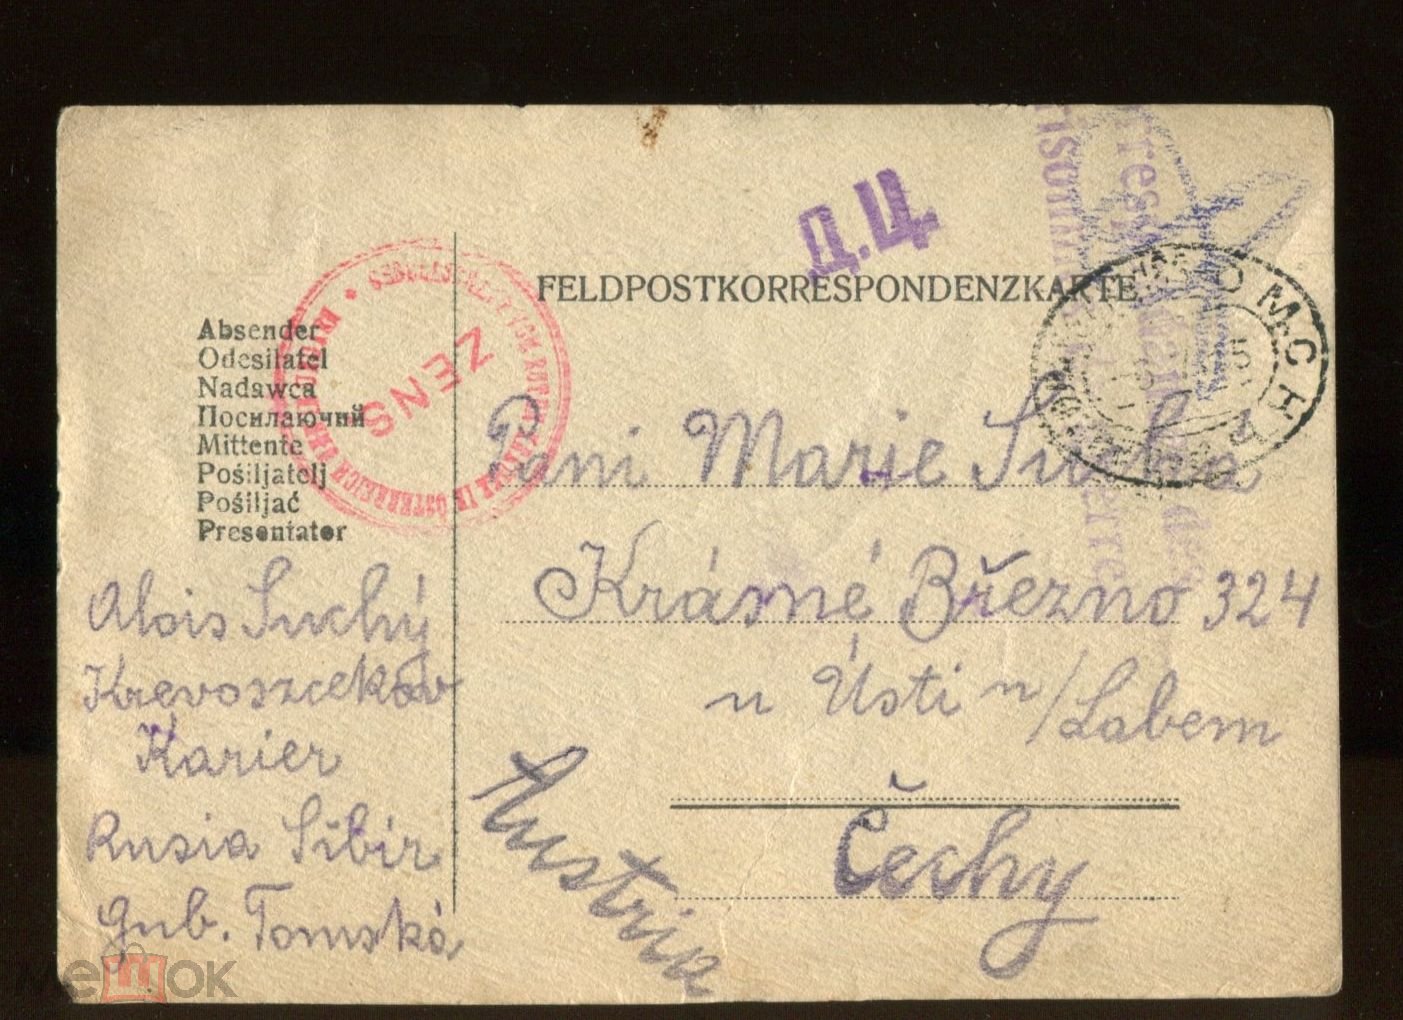 Д.Ц.
FELDPOSTKORRESPONDENZKARTE
ZENS
ТОМСКЪ
Absender
Odesilatel
Nadawca
Посилаючий
Mittente
Pošiljatelj
Pošiljač
Presentator
Alois Suchý
Krevoszcekov
Karier
Rusia Sibir
Gub. Tomská
Pani Marie Suchá
Krásné Březno 324
u Ústi n/Labem
Čechy
Austria
мешок